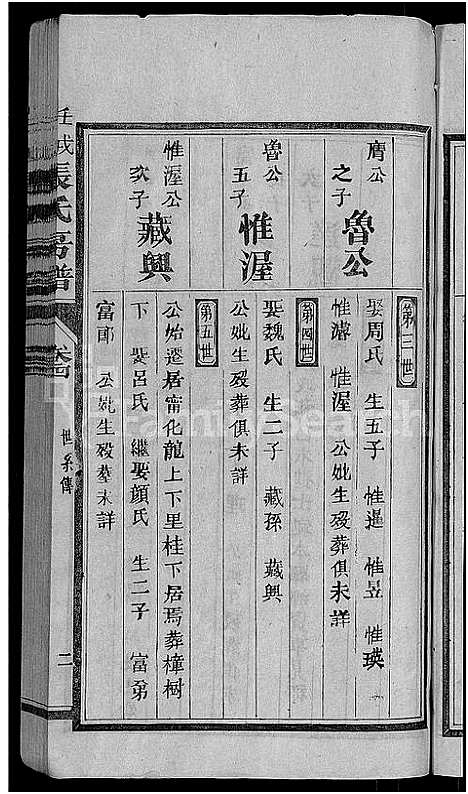 膺公
之子
魯公
第三世
娶周氏 生五子 惟暹 惟昱 惟瑛
惟濬 惟渥 公妣生殁葬俱未詳
魯公
五子
惟渥
第四世
娶魏氏 生二子 藏孫 藏興
公妣生殁葬俱未詳
惟渥公
次子
藏興
第五世
公始遷居甯化龍上下里桂下居焉葬樟樹
下 娶呂氏 繼娶顏氏 生二子 富弟
富郎 公妣生殁葬未詳
壬戌張氏房譜
世系傳
二